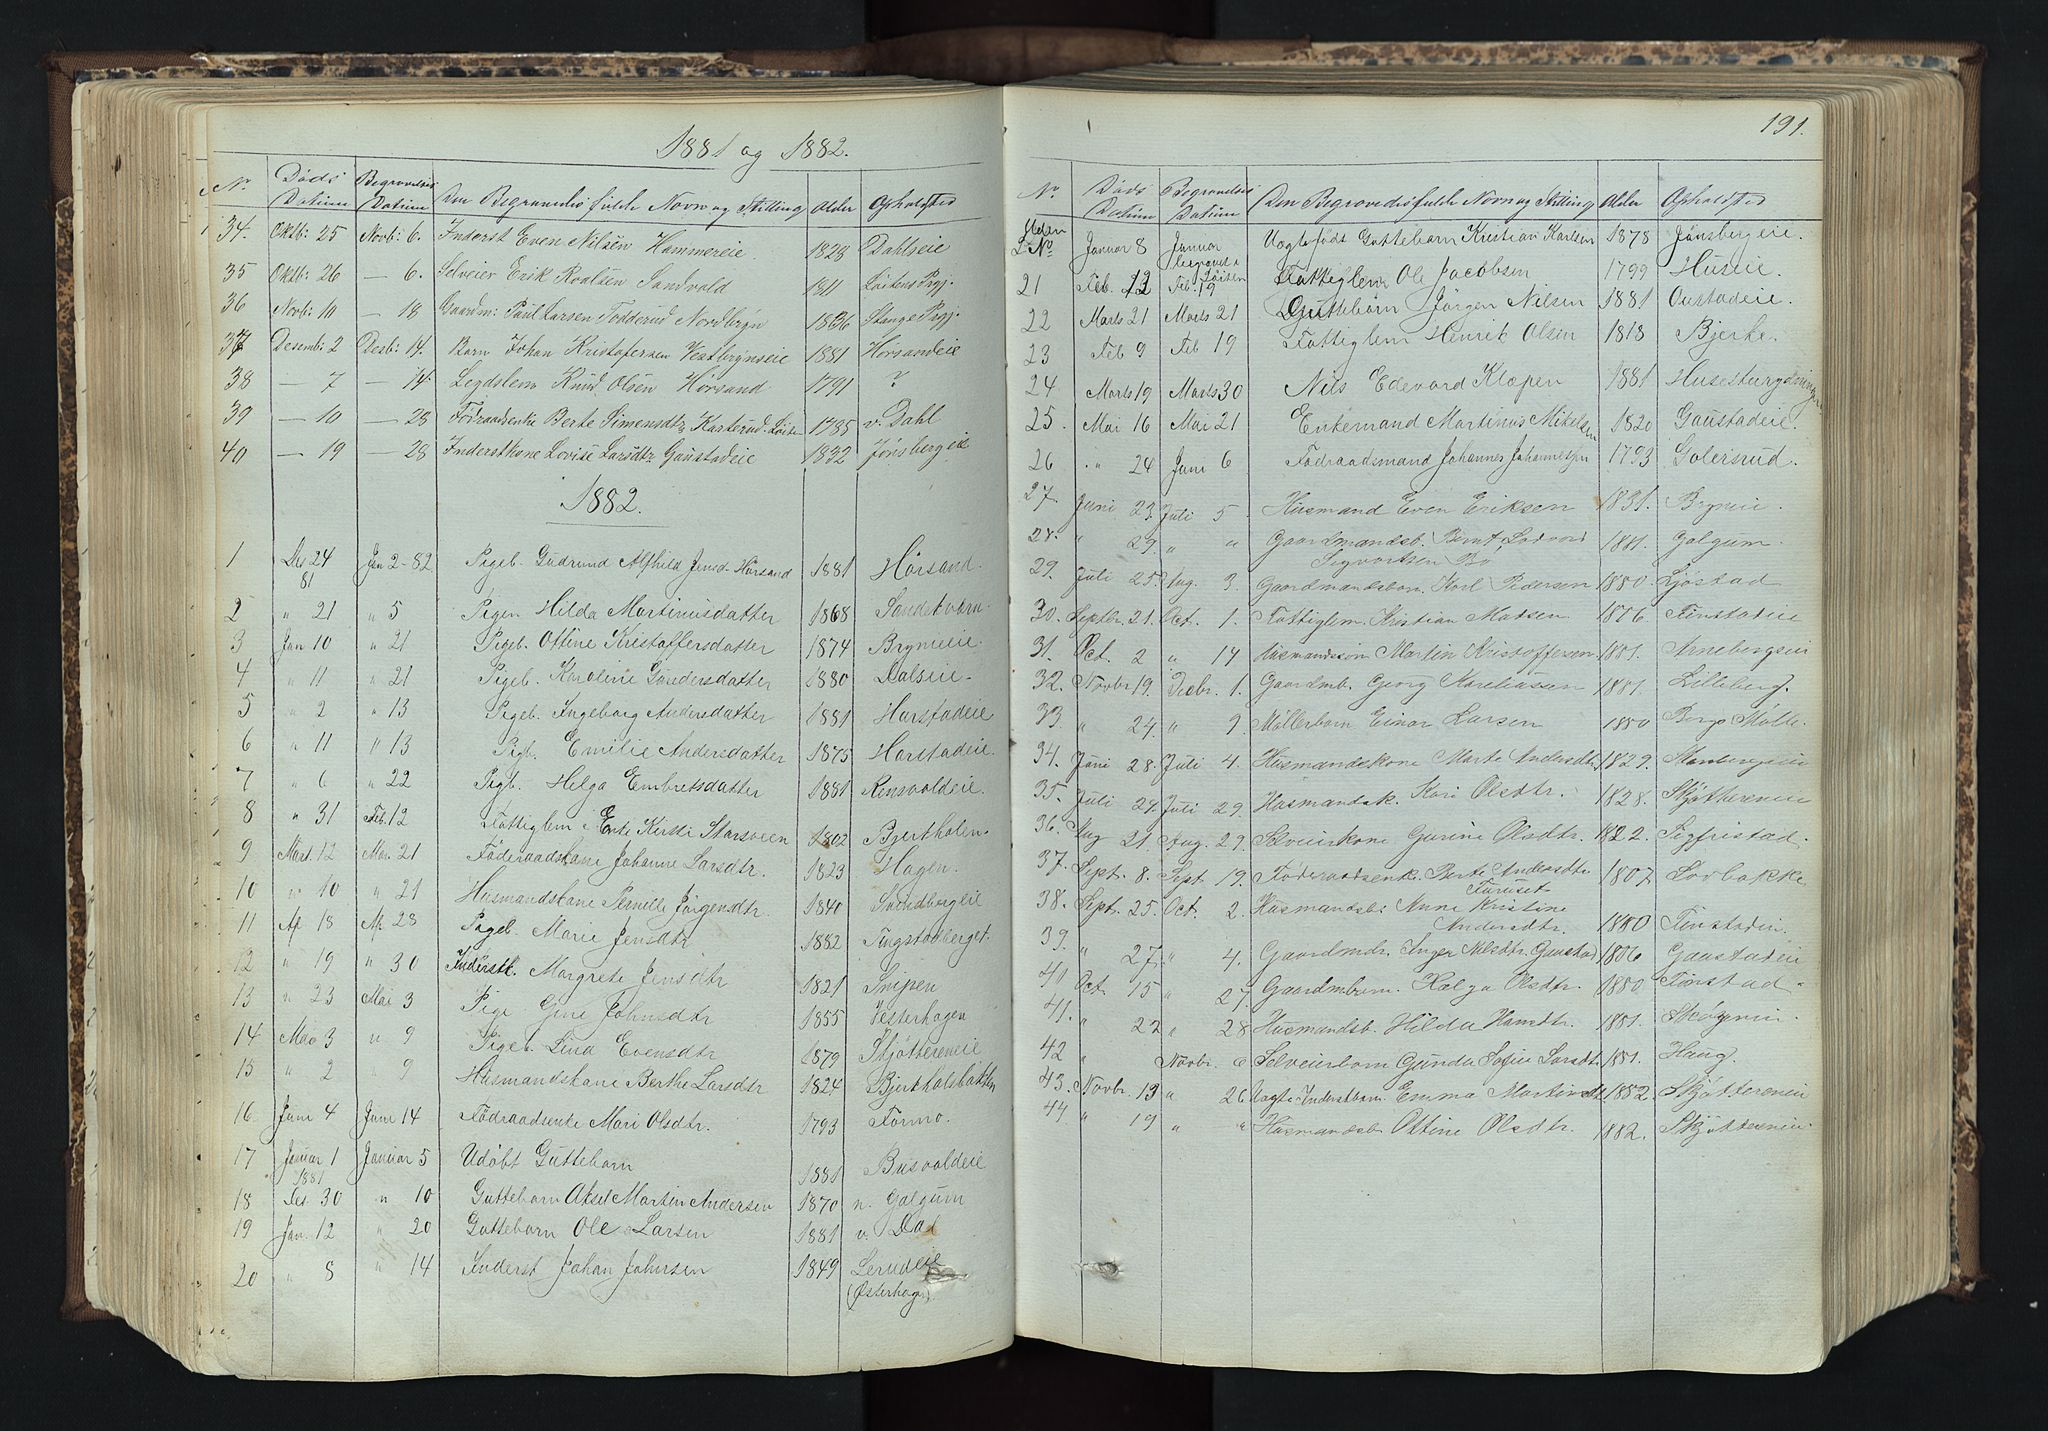 1881 og 1882.
No. Døds Datum Begravelses Datum Den Begravedes fulde Navn og Stilling Alder Opholdsted
34. Oktb: 25 Novb: 6. Inderst Even Nilsen Hammereie 1828 Dahlseie
35 Oktb: 26 — 6. Selveier Erik Roalsen Sandvold 1811 Løitens Prgj.
36 Novb: 10 — 18 Gaardm: Paul Larsen Todderud Nordbryn 1836 Stange Prgj.
37 Desemb: 2 Desb: 14. Barn Johan Kristofersen Vestbrynseie 1881 Horsandeie
38 — 7 — 14. Legdslem Knud Olsen Horsand 1791 ?
39 — 10 — 28 Föraadsenke Berte Simensdtr Karterud. Löiten 1785 v. Dahl
40 — 19 — 28 Inderstkone Lovise Larsdtr Gaustadeie 1832 Jønsbergeie
1882.
1 Des 24 81 Jan 2-82 Pigeb. Gudrund Alfhild Jensd. Horsand 1881 Horsand.
2 " 21 " 5 Pigen Hilda Martinusdatter 1868
3 Jan 10 " 21 Pigeb. Ottine Kristoffersdatter 1874 Brynieie.
4 " 11 " 21 Pigeb. Karoline Gundersdatter 1880 Dalseie.
5 " 2 " 13 Pigeb. Ingeborg Andersdatter 1881 Harstadeie
6 " 11 " 13 Pigb. Emilie Andersdatter 1875 Harstadeie.
7 " 6 " 22 Pigb. Helga Embretsdatter 1881 Rensvoldeie.
8 " 31 Feb. 12 Fattiglem Enke Kirsti Starsveen 1802 Bjertholen.
9 Mart. 12 Mar. 21 Föderaadskone Johanne Larsdtr. 1823 Hagen.
10 " 10 " 21 Husmandskone Pernille Jörgensdtr. 1840
11 Ap 18 Ap 28 Pigeb. Marie Jensdtr 1882 Tingstadberget.
12 " 19 " 30 Inderstk. Margrete Jensdtr 1821 Snipen
13 " 23 Mai 3 Pige Gine Johnsdtr 1855 Vesterhagen
14 Mai 3 " 9 Pigeb. Lina Evensdtr 1879 Skjöttereneie
15 " 2 " 9 Husmandskone Berthe Larsdtr 1824 Bjertholsbakken
16 Juni 4 Juni 14 Födraadsenke Mari Olsdtr. 1793 Formo.
17 Januar 1 Januar 5 Udöbt Guttebarn 1881 Busvoldeie
18 1881 Des 30 " 10 Guttebarn Aksel Martin Andersen 1870 n. Galgum
19 Jan. 12 " 20 Guttebarn Ole Larsen 1881 v. Dal
20 " 8 " 14 Inderst Johan Johnsen 1849 Lerudeie
(Østerhagen)
191.
No. Døds Datum Begravelses Datum Den Begravedes fulde Navn og Stilling Alder Opholdsted
Uden L No. Januar 8 Januar begravet i Löiten Uægtefødt Guttebarn Kristian Karlsen 1878 Jønsbergeie.
21 Feb. 12 Feb. 19 Fattiglem Ole Jacobsen 1799 Huseie.
22 Marts 21 Marts 21 Guttebarn Jörgen Nilsen 1881 Oustadeie.
23 Feb 9 Feb 19 Fattiglem Henrik Olsen 1818 Bjerke.
24 Marts 19 Marts 30 Nils Edevard Klæpen 1881
25. Mai 16 Mai 21 Enkemand Martinus Mikelsen 1820 Gaustadeie.
26 " 24 Juni 6 Födraadsmand Johannes Johannesen 1793 Golersrud.
27. Juni 23. Juli 5 Husmand Even Eriksen 1831. Bryneie.
28. " 29. " " Gaardmandsb. Bernt Ludvard 1881. Galgum.
Sigvartsen Bö
29. Juli 25. Aug. 3 Gaardmandsbarn. Karl Pedersen 1880 Ljöstad
30. Septbr. 21. Oct. 1. Fattiglem. Kristian Madsen 1806 Finstadeie
31. Oct. 2 " 14 Husmandssön Martin Kristoffersen 1881. Arnebergseie
32. Novbr 19. Decbr. 1. Gaardmb. Georg Kareliussen 1881. Lilleberg.
33. " 24. " 9 Möllerbarn Einar Larsen 1880 Berge Mölle.
34. Juni 28. Juli 4. Husmandskone Marte Andersdtr 1829.
35. Juli 24. Juli 29. Husmandsk. Kari Olsdtr. 1828. Skjöttereneie
36. Aug 21. Aug. 29. Selveierkone Gurine Olsdtr. 1822. Sigfristad.
37. Sept. 8. Sept. 19. Föderaadsenk. Berte Andersdtr Furuset 1807 Sorbakke
38. Sept. 25. Oct. 2. Husmandsb. Anne Kristine Andersdtr. 1880 Finstadeie.
39. " 27. " 4. Gaardmdr. Inger Nilsdtr. Gaustad 1806 Gaustadeie
41 Oct. 15 " 27. Gaardmbarn. Helga Olsdtr. 1880 Finstad.
41. " 22 " 28 Husmandsb. Hilda Hansdtr. 1881. Skögneie.
42 " Novbr 6 Selveierbarn Gunda Sofie Larsdtr 1881. Haug.
43. Novbr. 13 " 26 Uægte Inderstbarn. Emma Martinsdt. 1882. Skjöttereneie
44 " 19 " " Husmandsb. Ottine Olsdtr. 1882. Skjöttereneie.